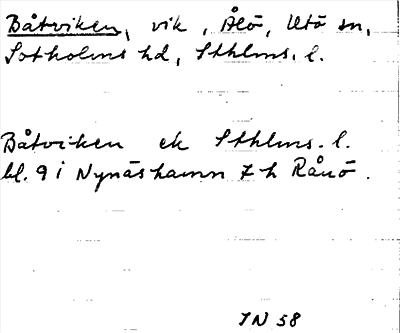 Båtviken, vik, Ålö, Utö sn,
Sotholms hd, Sthlms. l.
Båtviken ek Sthlms. l.
bl. 9 i Nynäshamn 7 h Rånö.
IN 58